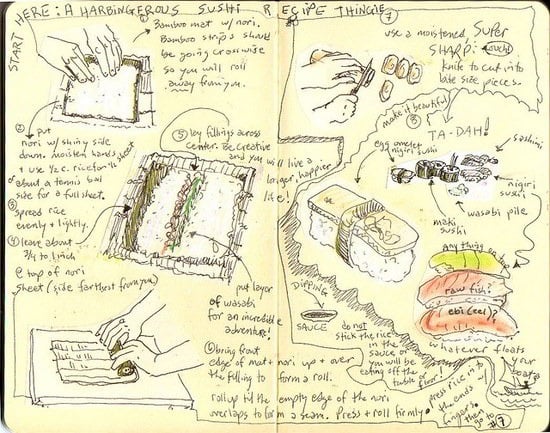 START HERE: A HARBINGEROUS SUSHI RECIPE THINGIE
① Bamboo mat w/ nori.
Bamboo strips should
be going crosswise
so you will roll
away from you.
② put
nori w/ shiny side
down. moisten hands
+ use ½ c. rice for ½ sheet
or about a tennis ball
size for a full sheet.
③ spread rice
evenly + lightly.
④ leave about
¾ to 1 inch
@ top of nori
sheet (side farthest from you)
⑤ lay fillings across
center. Be creative
and you will live a
longer, happier
life!
put layer
of wasabi
for an incredible
adventure!
⑥ bring front
edge of mat + nori up + over
the filling to form a roll.
roll up til the empty edge of the nori
overlaps to form a seam. Press + roll firmly.
press rice into
the ends w/
fingers.
then
go to
⑦
⑦
use a moistened, super
SHARP (ouch!)
knife to cut into
bite size pieces.
⑧
make it beautiful
TA-DAH!
egg omelet
nigiri sushi
sashimi
nigiri
sushi
wasabi pile
maki
sushi
DIPPING
SAUCE
do not
stick the rice
in the
sauce or
you will be
eating off the
table or floor!
Anything on top
raw fish?
ebi (eel)?
whatever floats
your
boats